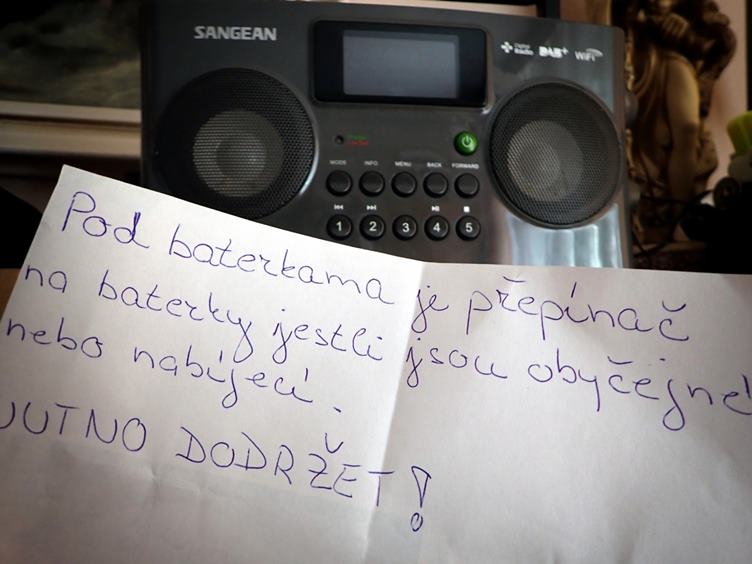 SANGEAN
Digital Radio DAB+ WiFi
MODE INFO MENU BACK FORWARD
1 2 3 4 5
Pod baterkama je přepínač
na baterky jestli jsou obyčejné
nebo nabíjecí.
NUTNO DODRŽET!